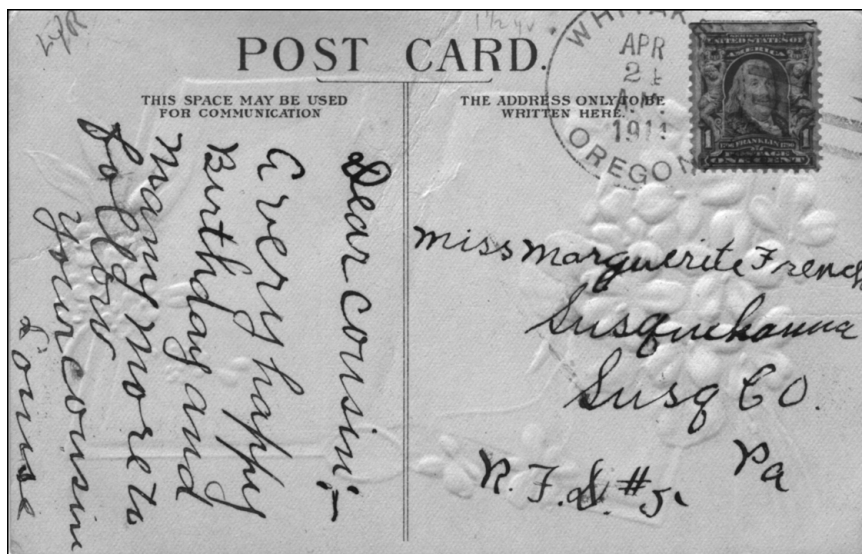 POST CARD.
THIS SPACE MAY BE USED
FOR COMMUNICATION
THE ADDRESS ONLY TO BE
WRITTEN HERE.
APR
A.M.
OREGON
UNITED STATES OF
AMERICA
FRANKLIN
ONE CENT
Dear Cousin:-
A very happy
Birthday and
many more to
follow
Your cousin
Louise
Miss Marguerite French
Susquehanna
Susq Co.
Pa
R.F.D. #5